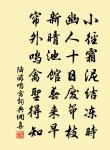 小径霜泥结冻时
幽人十日废笻枝
新晴池馆春来早
帘外鸣禽圣得知
陆游鸣禽词典网集